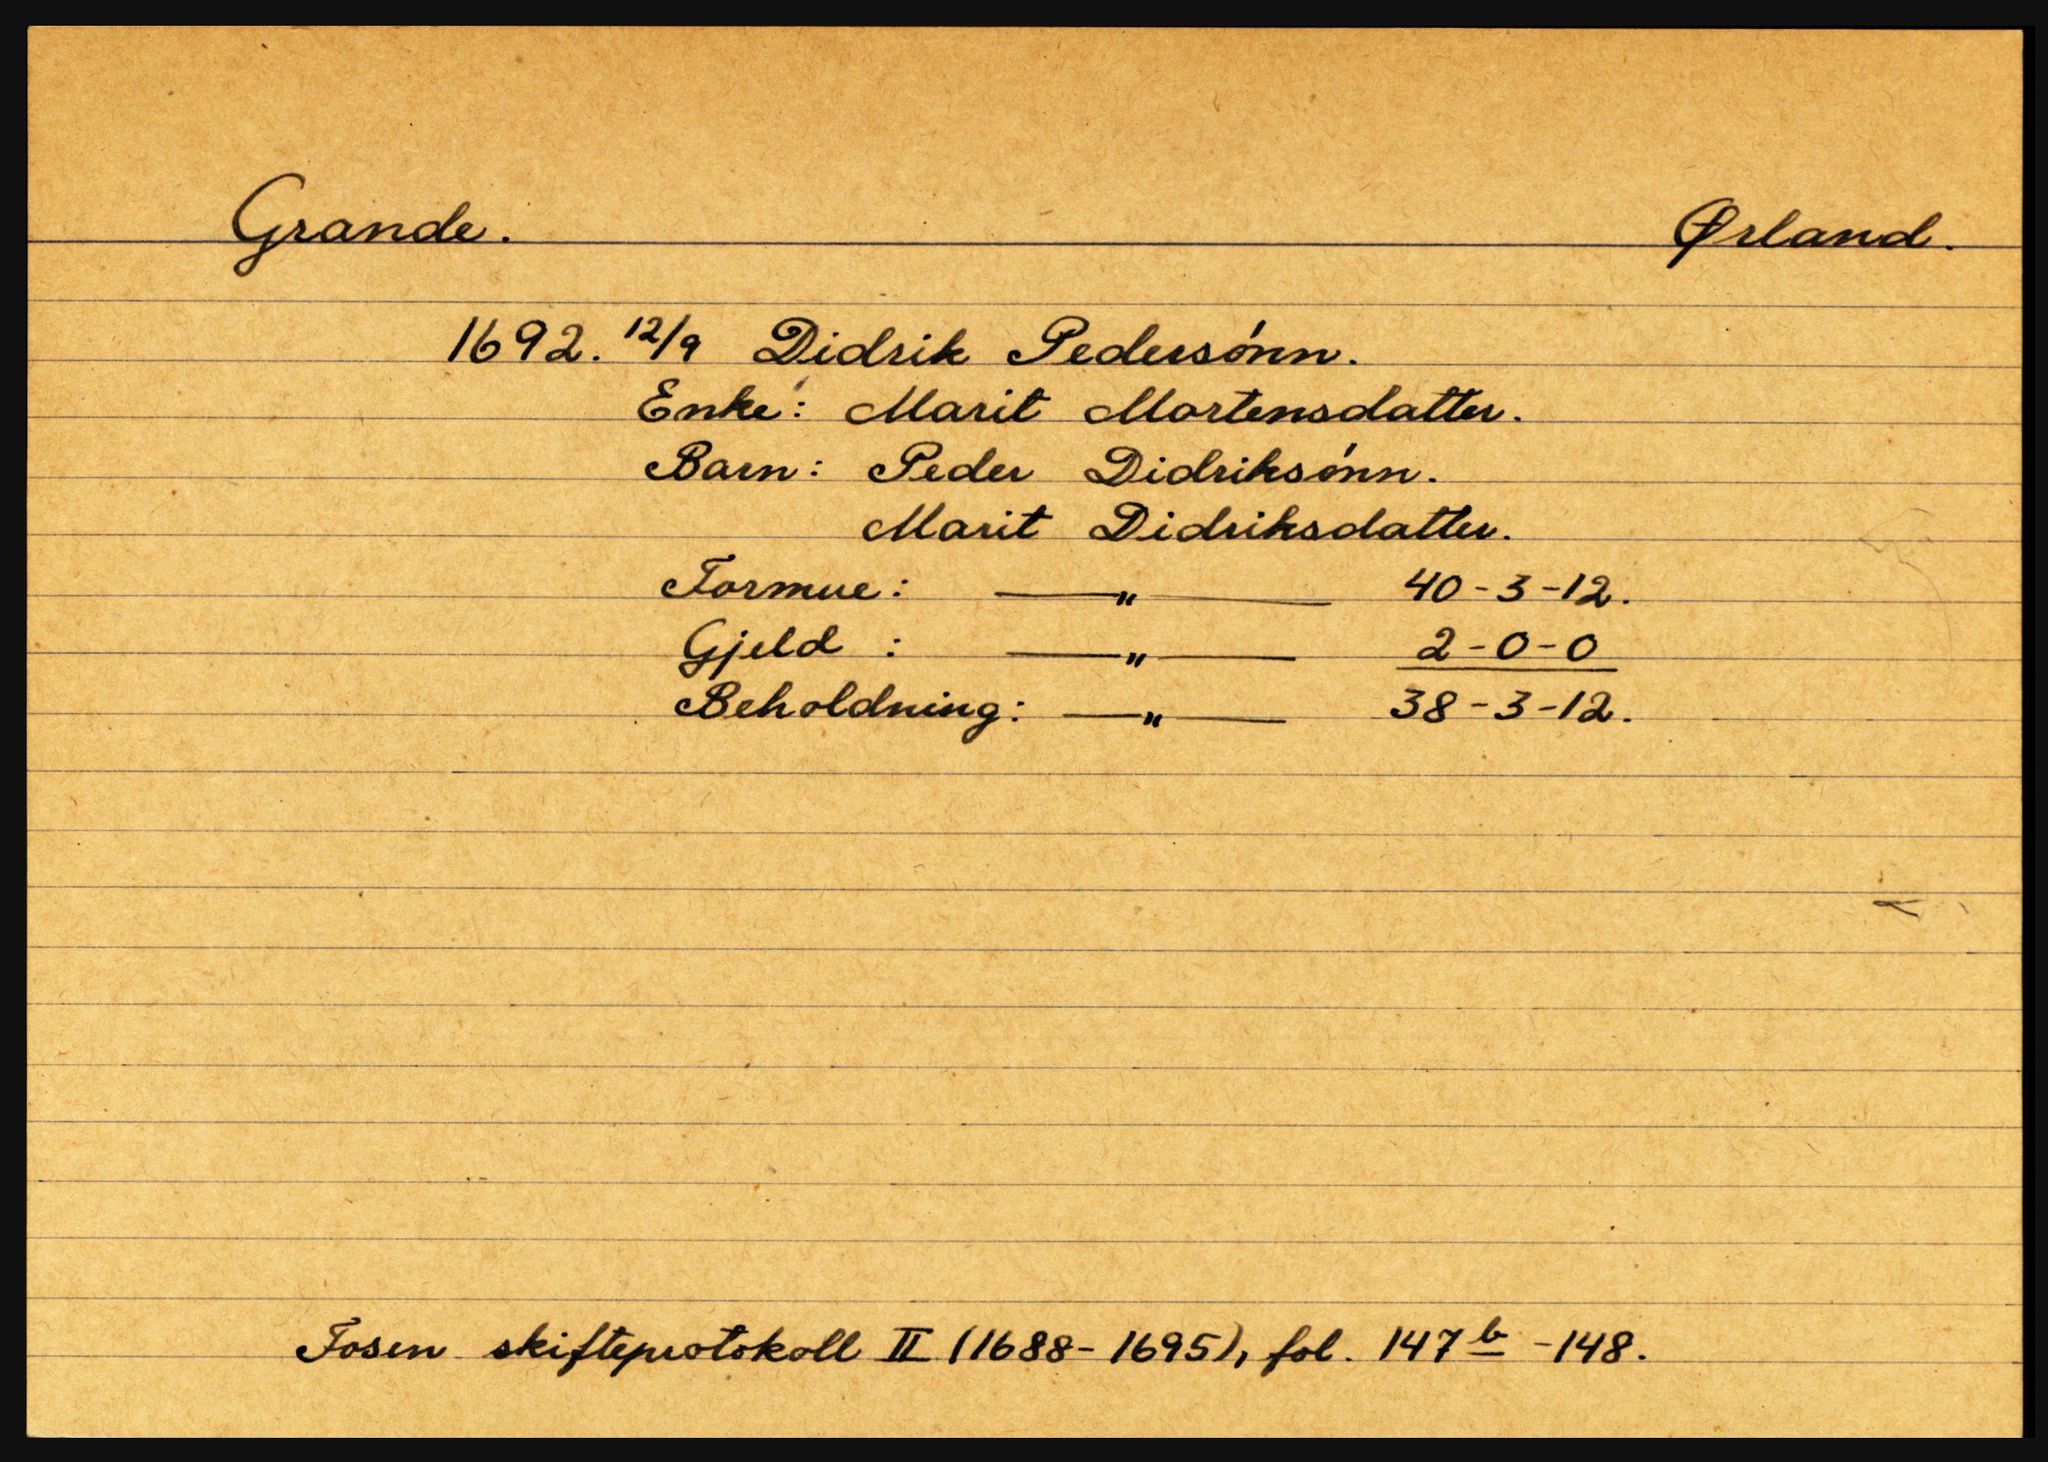 Grande. Ørland.
1692. 12/9 Didrik Pedersønn.
Enke: Marit Mortensdatter.
Barn: Peder Didriksønn.
Marit Didriksdatter.
Formue: —"— 40-3-12.
Gjeld : —"— 2-0-0
Beholdning: —"— 38-3-12.
Fosen skifteprotokoll II (1688-1695), fol. 147b -148.